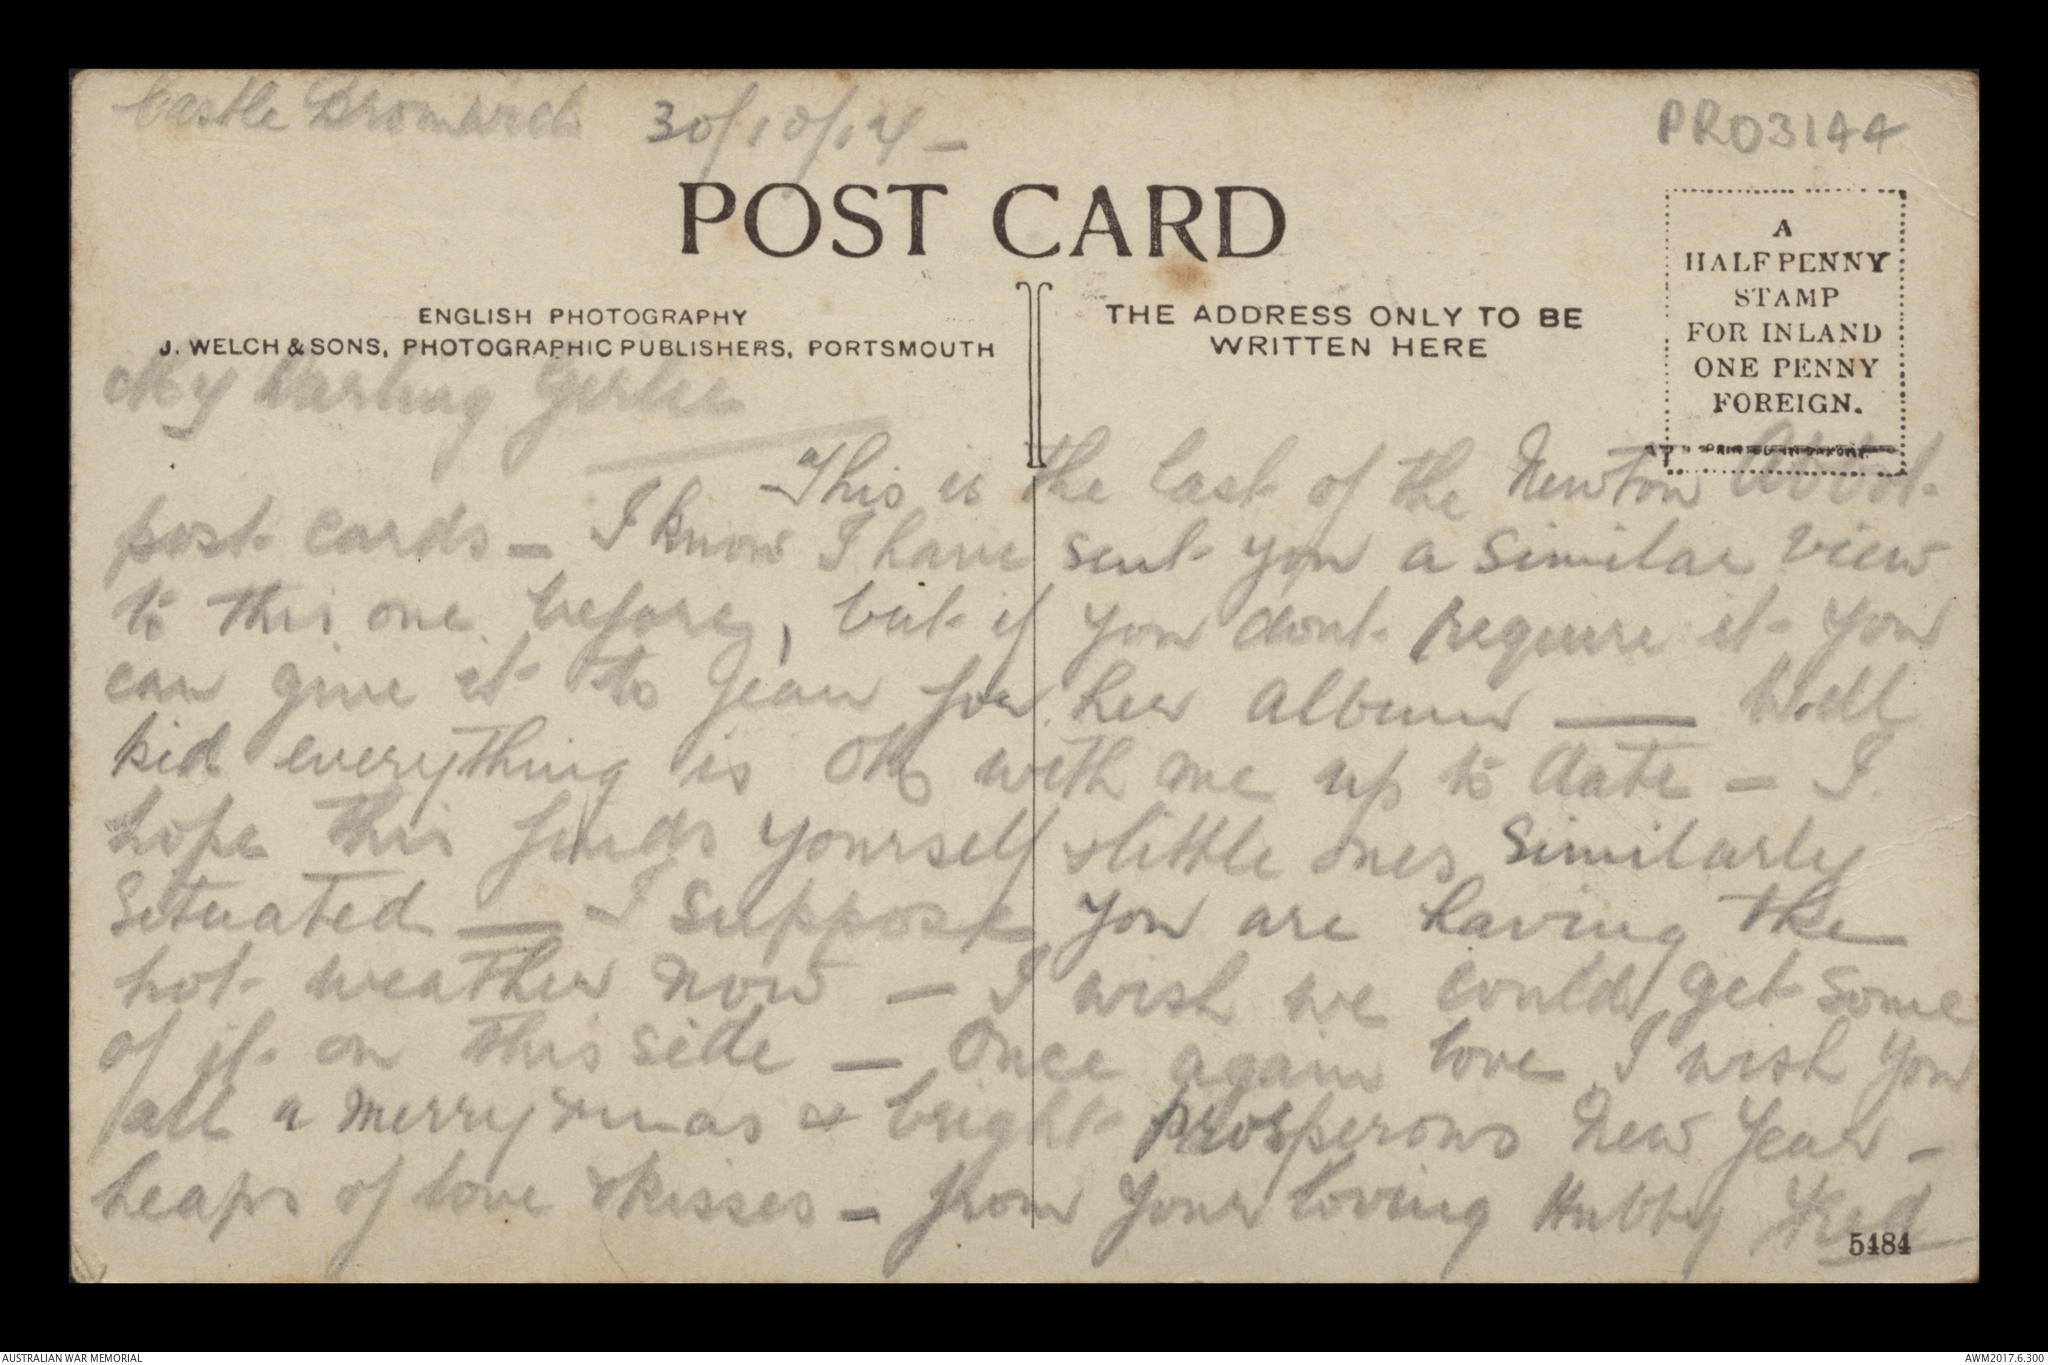 Castle Bromwich 30/10/17 -
PR03144
POST CARD
ENGLISH PHOTOGRAPHY
J. WELCH & SONS, PHOTOGRAPHIC PUBLISHERS, PORTSMOUTH
THE ADDRESS ONLY TO BE
WRITTEN HERE
A
HALFPENNY
STAMP
FOR INLAND
ONE PENNY
FOREIGN.
My Darling Girlie
This is the last of the Newton Abbot
post cards - I know I have sent you a similar view
to this one before, but if you dont require it you
can give it to Jean for her album — Well
kid everything is OK with me up to date - I
hope this finds yourself & little ones similarly
situated — I suppose you are having the
hot weather now - I wish we could get some
of it on this side - Once again love I wish you
all a merry xmas & bright prosperous New Year -
heaps of love & kisses - from your loving Hubby Fred
5484
AUSTRALIAN WAR MEMORIAL
AWM2017.6.300